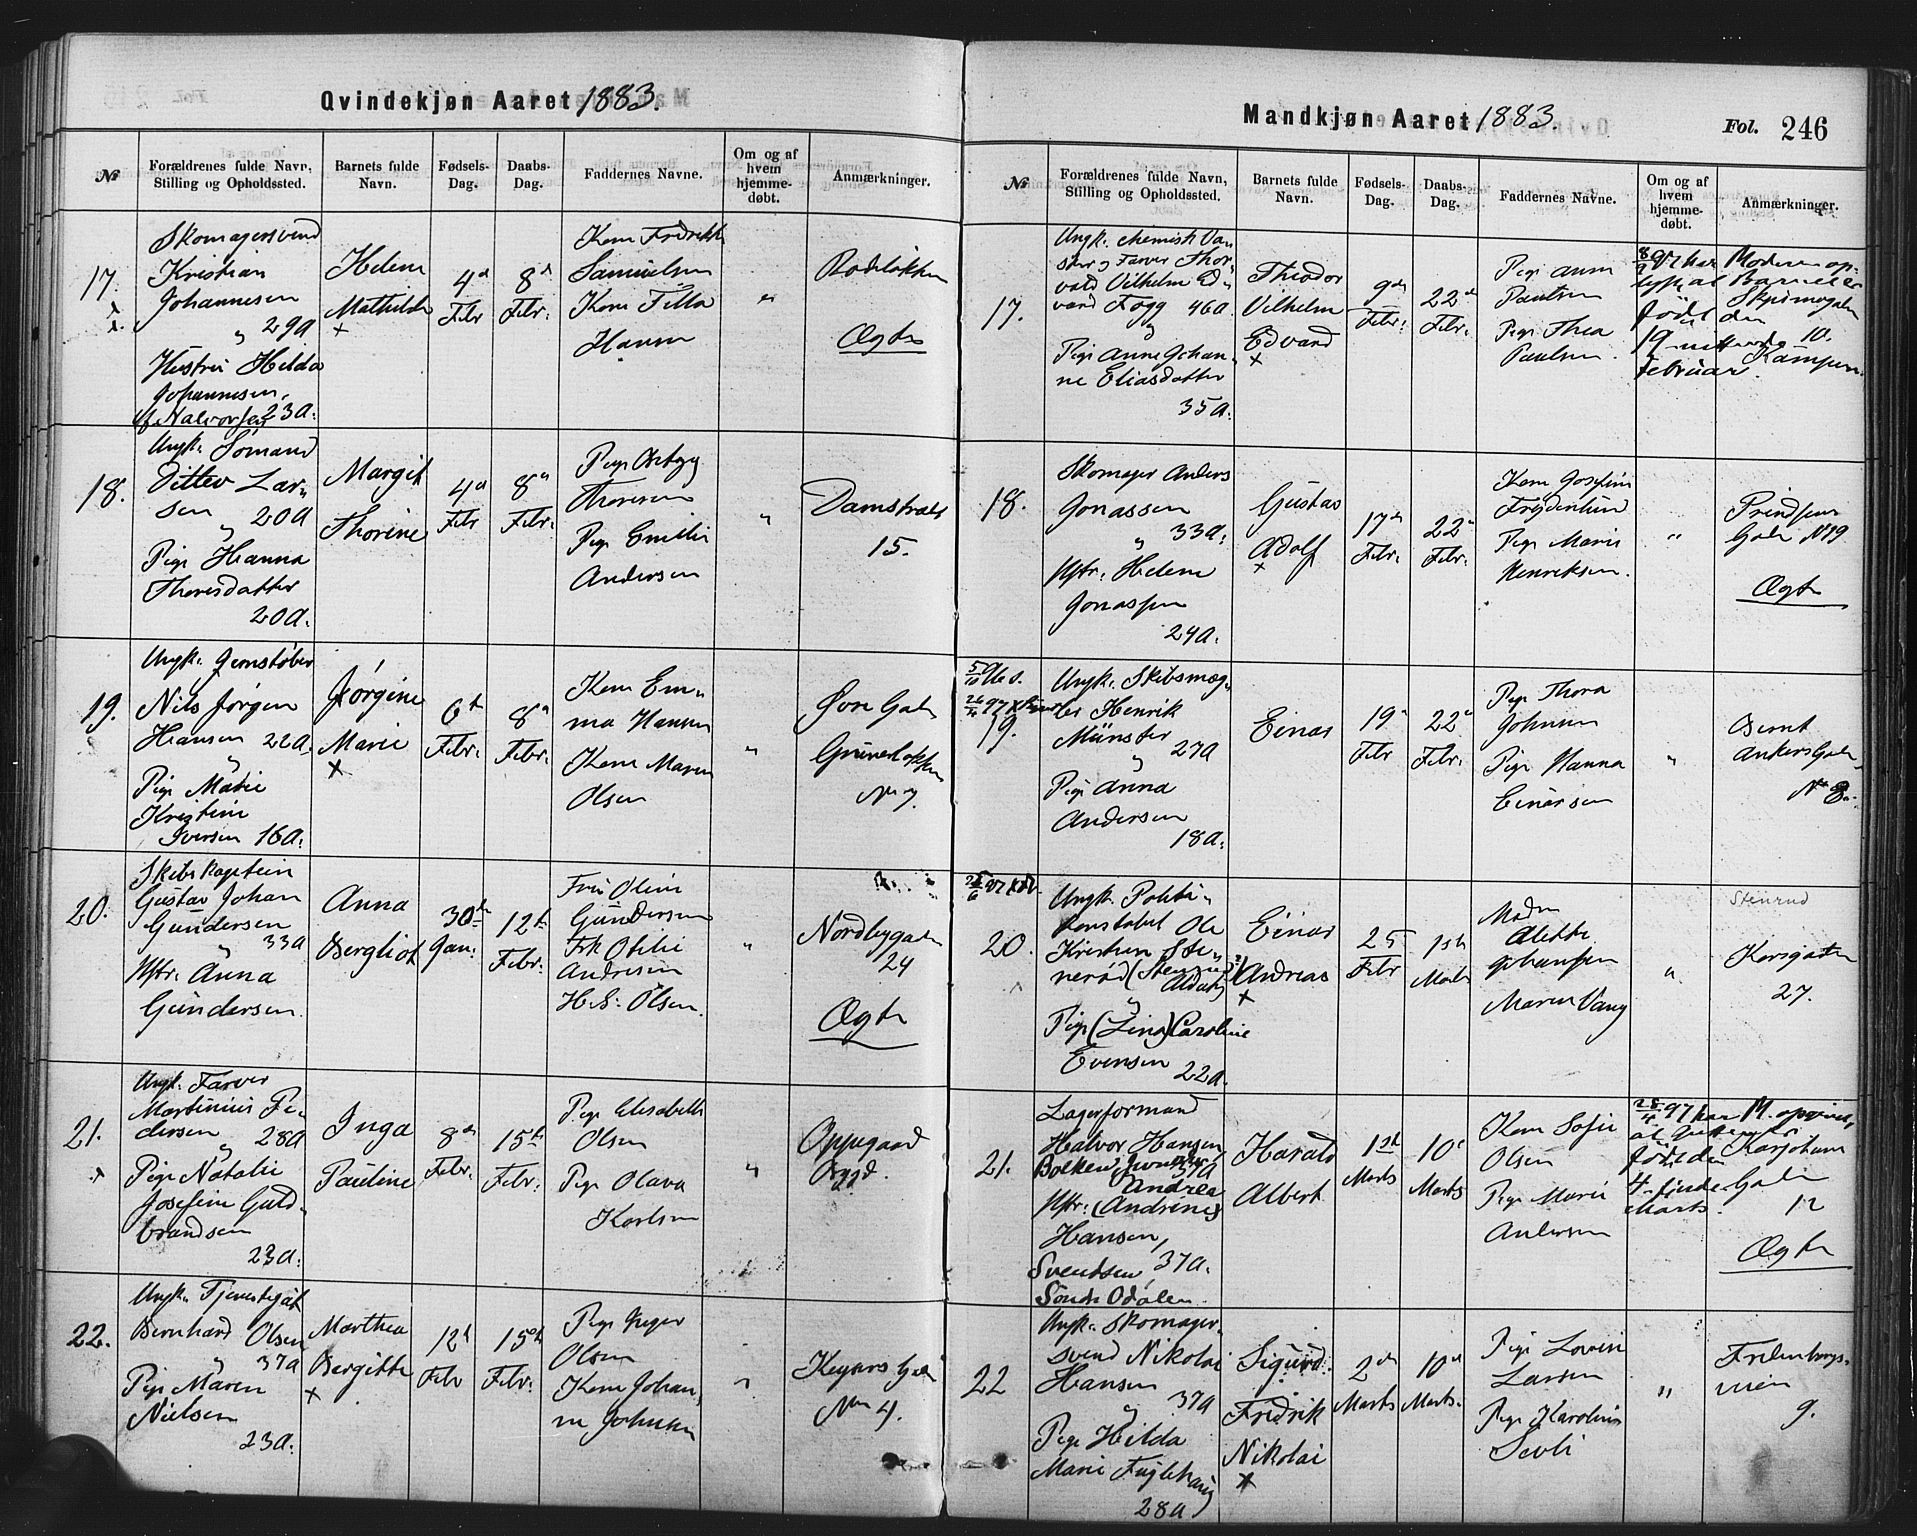 Qvindekjøn Aaret 1883.
№
Forældrenes fulde Navn,
Stilling og Opholdssted.
Barnets fulde
Navn.
Fødsels-
Dag.
Daabs-
Dag.
Faddernes Navne.
Om og af
hvem
hjemme-
døbt.
Anmærkninger.
17.
Skomagersvend
Kristian
Johannesen
" 29a
Hustru Hilda
Johannesen,
f. Halvorsen 23a.
Helene
Mathilde
×
4d
Febr
8d
Febr.
Kone Fredrikke
Samuelsen
Kone Tilla
Hansen
"
Rodeløkken
Ægte
18.
Ungk. Sömand
Ditlev Lar„
sen " 20a
Pige Hanna
Thoresdatter
20a.
Margit
Thorine
4d
Febr
8d
Febr.
Pige
Thoresen
Pige Emilie
Andersen
"
Damstrædet
15.
19.
Ungk. Jernstøber
Nils Jørgen
Hansen 22a.
"
Pige Marie
Kristine
Iversen 16a.
Jørgine
Marie
×
6t
Febr.
8d
Febr.
Kone Em„
ma Hansen
Kone Maren
Olsen
"
Øvre Gade
Grünerløkken
№ 7
20.
Skibskaptein
Gustav Johan
Gundersen
" 33a
Hstr. Anna
Gundersen.
Anna
Bergliot
30te
Jan.
12te
Febr.
Fru Oline
Gundersen
Frk Otilie
Andresen
H. S. Olsen.
"
Nordbygaden
24
Ægte
21.
×
Ungk. Farver
Martinius Pe„
dersen " 28a
Pige Natalie
Josefine Guld„
brandsen
23a.
Inga
Pauline
8de
Febr.
15te
Febr.
Pige Elisabeth
Olsen
Pige Olava
Karlsen
"
Oppegaard
22.
Ungk.
Bernhard Olsen
" 37a
Pige Maren
Nielsen
23a.
Marthea
Bergitte
×
12t
Febr
15de
Febr.
Pige Inger
Olsen
Kone Johan„
ne Johnsen
"
Keysers Gade
№ 4.
Mandkjøn Aaret 1883.
Fol. 246
№
Forældrenes fulde Navn,
Stilling og Opholdssted.
Barnets fulde
Navn.
Fødsels-
Dag.
Daabs-
Dag.
Faddernes Navne.
Om og af
hvem
hjemme-
døbt.
Anmærkninger.
17.
Ungk. chemisk Va„
sker og Farver Thor„
vald Vilhelm Ed„
vard Fogg 46a
"
Pige Anne Johan„
ne Eliasdatter
35a.
Theodor
Vilhelm
Edvard
×
9de
Febr.
22d
Febr.
Pige Anna
Paulsen
Pige Thea
Paulsen.
8/9 97 har Moderen op„
lyst at Barnet er
født den
19 - nittende
Februar.
Skippergaden
10.
Kampen.
18.
Skomager Anders
Jonassen
" 33a.
Hstr. Helene
Jonassen
24a.
Gustav
Adolf
×
17de
Febr.
22d
Febr.
Kone Josefine
Frydenlund
Pige Marie
Henriksen.
"
Prindsens
Gade №19
Ægte
19.
Ungk. Skibsmæg„
ler Henrik
Münster
" 27a
Pige Anna
Andersen
18a.
Einar
19d
Febr
22d
Febr.
Pige Thora
Johnsen
Pige Hanna
Einarsen
"
Bernt
Ankers Gade
№ 8.
20.
Ungk. Politi„
konstabel Ole
Kristian Ste„
nerød (Stenrud)
"
Pige (Lina) Caroline
Evensen 22a.
Einar
Andreas
×
25
Febr
1ste
Marts
Madm
Alette
Johansen
Maren Vang
"
Stenrud
Korsgaden
27.
21.
Lagerformand
Halvor Hansen
37a
Andrea
Hstr. (Andrine)
Hansen,
Svendsen, 37a.
Søndre Odalen.
Harald
Albert
1ste
Marts
10de
Marts
Kone Sofie
Olsen
Pige Marie
Andersen
25/4 97 har M. opgivet,
født den
4 - fjerde
Marts.
Karljohans
Gade
12
Ægte
22
Ungk. Skomager„
svend Nikolai
Hansen
" 37a
Pige Hilda
Marie Fuglehaug
28a
Sigurd
Fredrik
Nikolai
×
2de
Marts
10d
Marts.
Pige Lovise
Larsen
Pige Karoline
"
Fredensborgs„
veien
9.